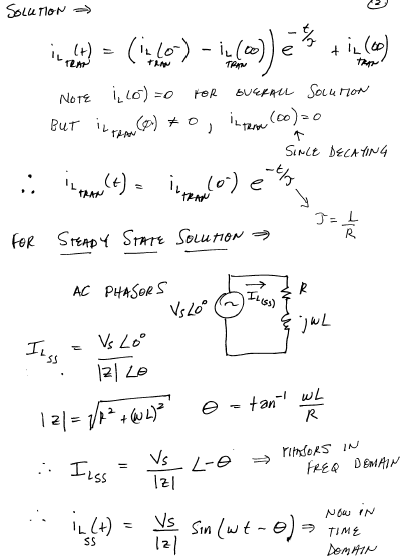 SOLUTION ⇒ (2)
i_L TRAN (t) = (i_L TRAN (0⁻) − i_L TRAN (∞)) e^(−t/τ) + i_L TRAN (∞)
NOTE i_L(0⁻) = 0 FOR OVERALL SOLUTION
BUT i_L TRAN (0) ≠ 0 , i_L TRAN (∞) = 0
↑
SINCE DECAYING
∴ i_L TRAN (t) = i_L TRAN (0⁻) e^(−t/τ)
τ = L/R
FOR STEADY STATE SOLUTION ⇒
AC PHASORS
V_S ∠0° I_L(SS) R
jωL
I_L SS = V_S ∠0° / |Z| ∠θ
|Z| = √(R² + (ωL)²) θ = tan⁻¹ ωL/R
∴ I_L SS = V_S/|Z| ∠−θ ⇒ PHASORS IN
FREQ DOMAIN
∴ i_L SS (t) = V_S/|Z| Sin(ωt − θ) ⇒ NOW IN
TIME
DOMAIN